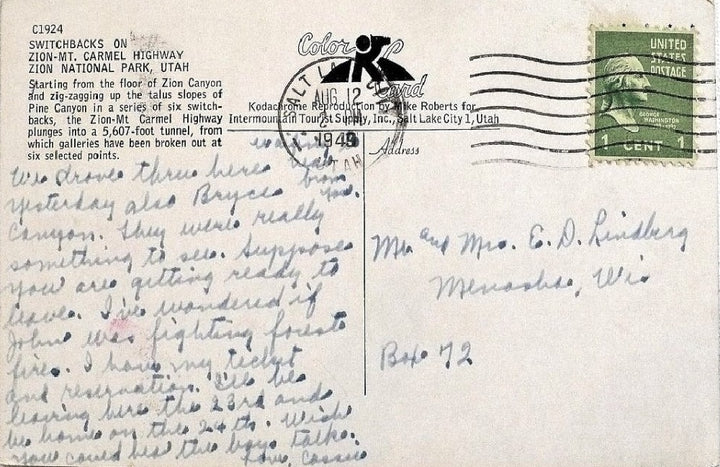 C1924
SWITCHBACKS ON
ZION-MT. CARMEL HIGHWAY
ZION NATIONAL PARK, UTAH
Starting from the floor of Zion Canyon
and zig-zagging up the talus slopes of
Pine Canyon in a series of six switch-
backs, the Zion-Mt. Carmel Highway
plunges into a 5,607-foot tunnel, from
which galleries have been broken out at
six selected points.
We drove thru here
yesterday also Bryce
Canyon. They were really
something to see. Suppose
you are getting ready to
leave. I've wondered if
John was fighting forest
fires. I have my ticket
and reservation. I'll be
leaving here the 23rd and
be home on the 24th. Wish
you could hear the boys talk.
Love, Cassie
from
you.
Color Card
Kodachrome Reproduction by Mike Roberts for
Intermountain Tourist Supply, Inc., Salt Lake City 1, Utah
SALT LAKE
AUG 12
PM
1949
UTAH
Address
UNITED
STATES
POSTAGE
GEORGE
WASHINGTON
1 CENT 1
Mr. and Mrs. E. D. Lindberg
Menasha, Wis
Box 72